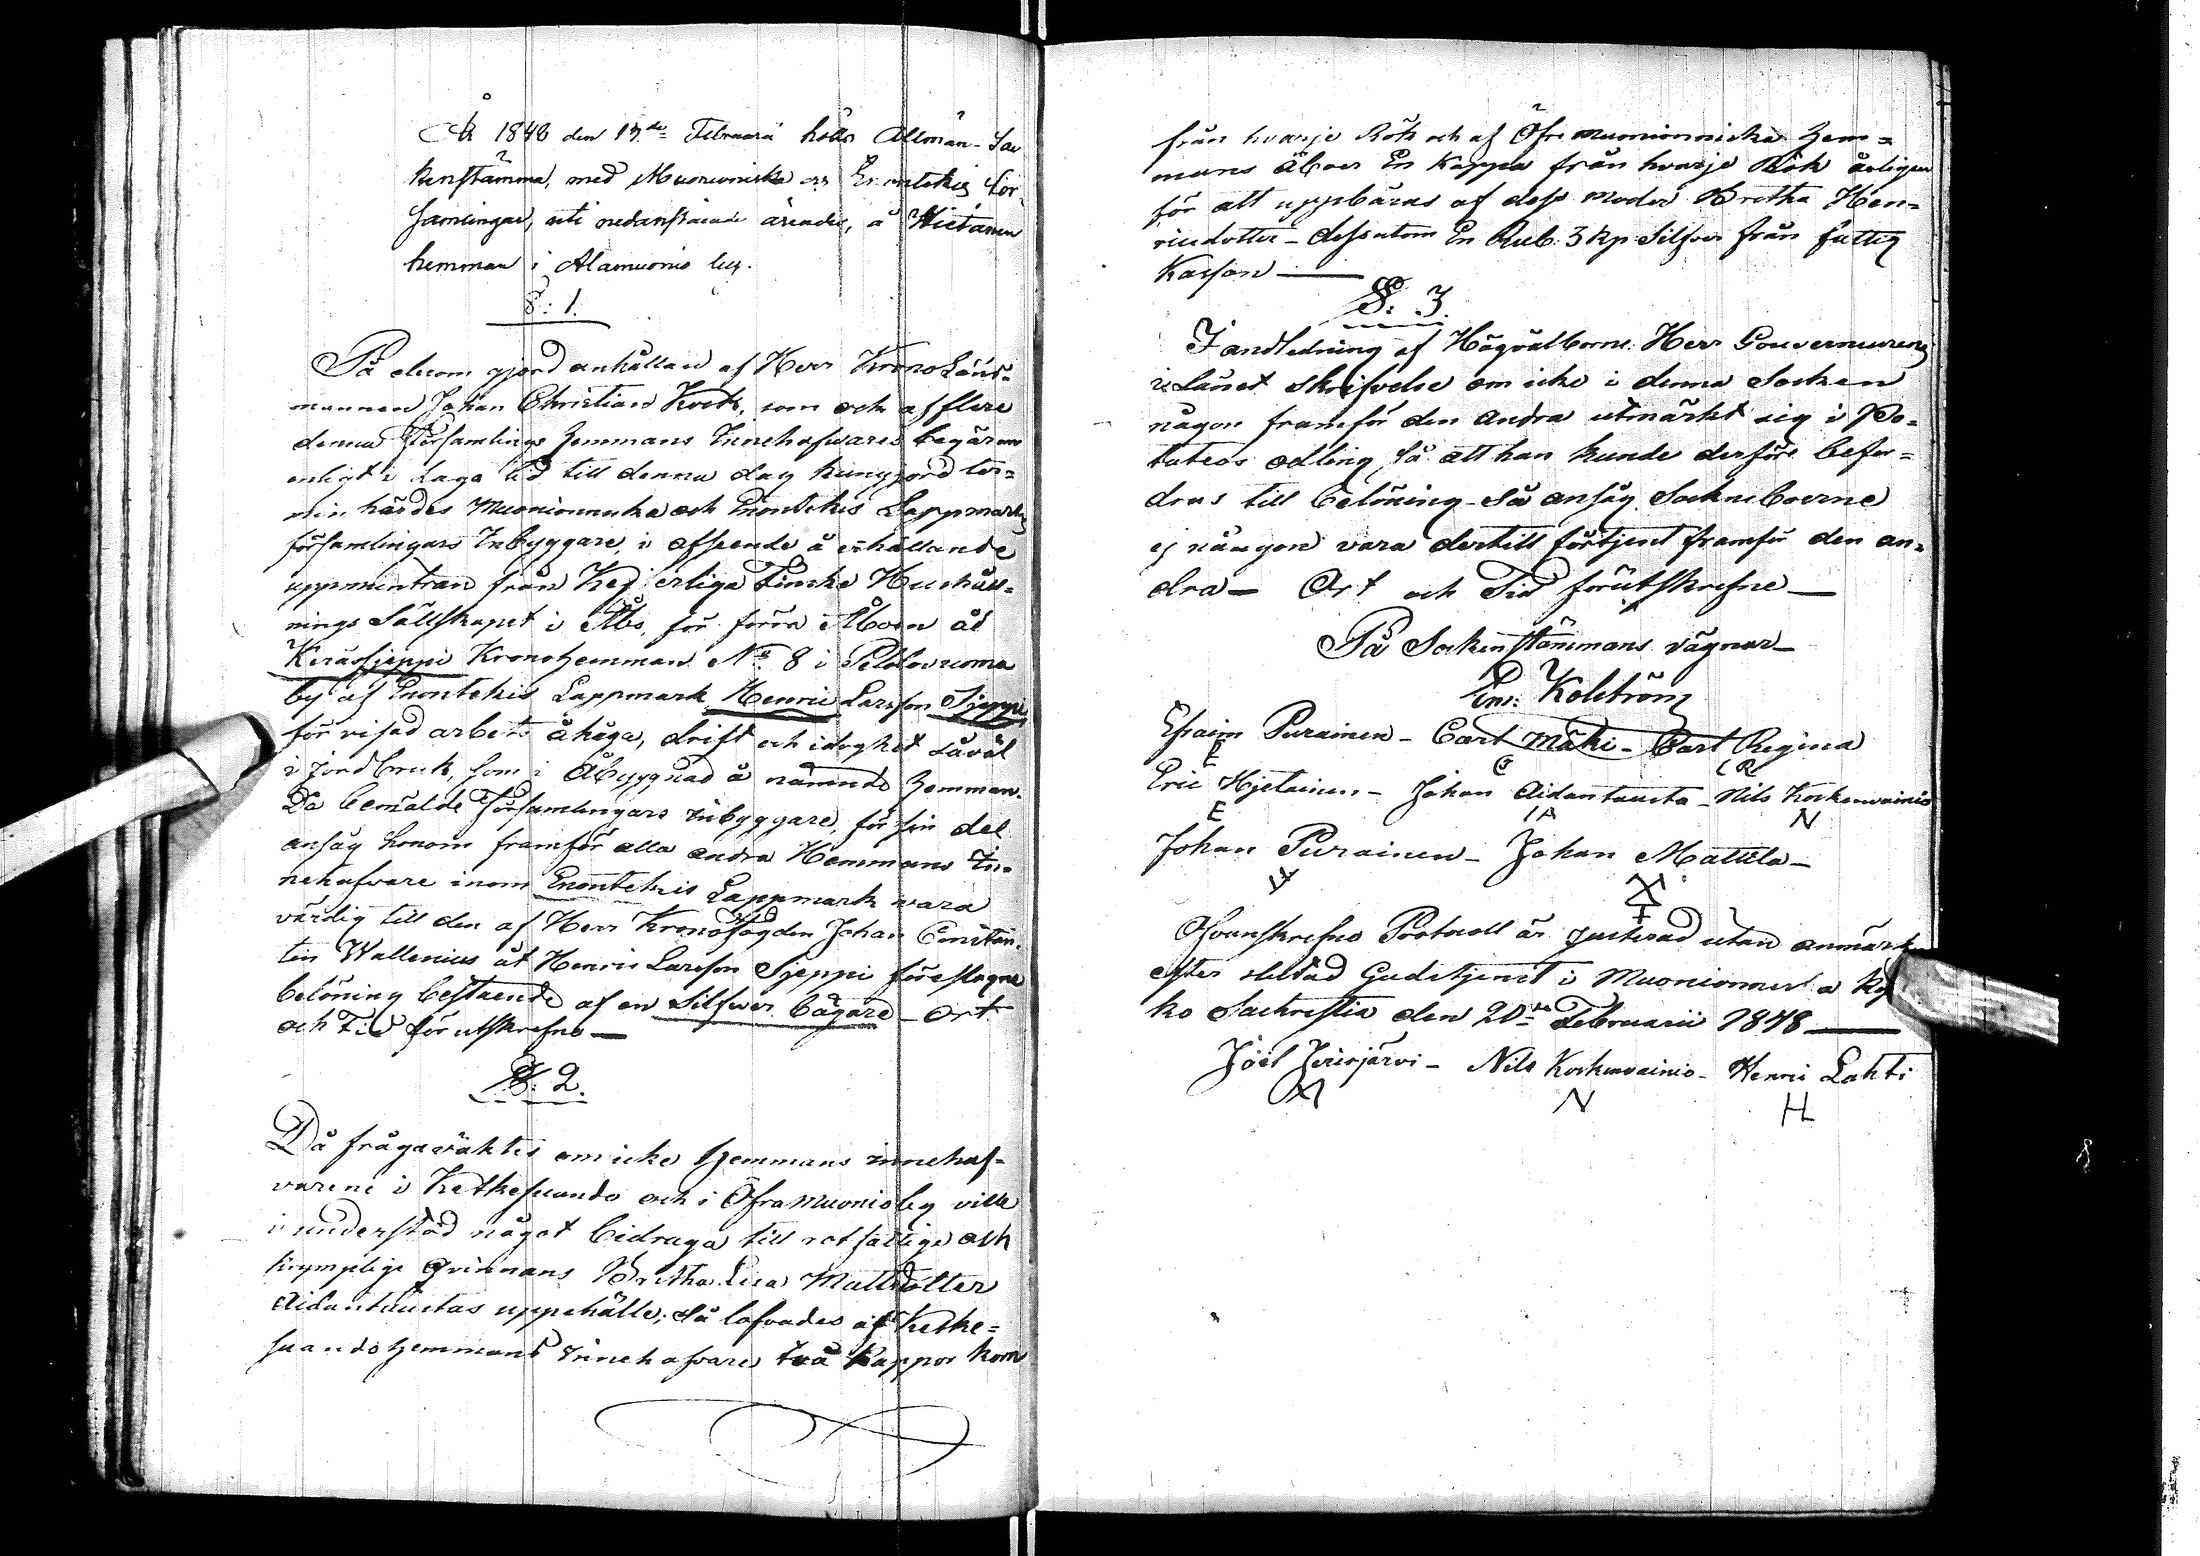 År 1848 den 17de Februarii hölls Allmän Soc
kenstämma, med Muonioniska och Enontekis för
samlingar, uti nedanstående ärende, å Hietanen
hemman i Alamuonio by.
§: 1.
På derom gjord anhållan af Herr Krono Läns=
mannen Johan Christian Kock, som och af flere
denna Församlings Hemmans Innehafvares begäran
enligt i laga tid till denna dag kungjord ter=
min hördes Muonionniska och Enontekis Lappmarks
församlingars Inbyggare, i afseende å erhållande
uppmuntran från Kejserliga Finska Hushåll=
nings Sällskapet i Åbo, för förra Åboen å
Keräsjeppi Kronohemman No 8 i Peldovuoma
by af Enontekis Lappmark Henric Larsson Sjeppi
för visad arbets åhåga, drift och idoghet såväl
i jordbruk, som i Åbyggnad å nämnde Hemman.
Då bemälde Församlingars inbyggare, för sin del
ansåg honom framför alla andra Hemmans In=
nehafvare inom Enontekis Lappmark vara
värdig till den af Herr Kronofogden Johan Constan=
tin Wallenius åt Henric Larsson Sjeppi föreslagne
belöning bestående af en Silfver bägare – Ort
och Tid förutskrefne —
§: 2.
Då fråga väktes om icke Hemmans innehaf=
varene i Ketkesuando och i Öfra Muonio by ville
i understöd något bidraga till rotfattige och
krymplige Qvinnans Britha Lisa Mattsdotter
Aidantaustas uppehälle; Så lofvades af Ketke=
suando Hemmans Innehafvare två Kappor Korn
från hvarje Rök och af Öfre Muonionniska Hem=
mans Åboer En Kappa från hvarje Rök årligen
för att uppbäras af dess moder Britha Hen=
ricsdotter – dessutom En Rub. 3 Kp. Silfver från fattig
Kassan —
§: 3.
I anledning af Högvälborne Herr Gouverneurens
i Länet skrifvelse om icke i denna Socken
någon framför den andra utmärkt sig i Po=
tateos odling så att han kunde derföre befor=
dras till belöning – Så ansåg Sockneboerne
ej någon vara dertill förtjent framför den an=
dra — Ort och Tid förutskrefne —
På Sockenstämmans vägnar —
Em: Kolström
Efraim Purainen – Carl Mäki – Carl Regina
E C CR
Eric Hjetainen – Johan Aidantausta – Nils Korkenvainio
E IA N
Johan Purainen – Johan Mattila –
Ofvanskrefne Protocoll är justerad utan anmärk
efter slutad Gudstjenst i Muonionniska Kyr
ko Sackristia den 20de Februarii 1848 —
Joël Jerisjärvi – Nils Korkenvainio – Henric Lahti
N H
8